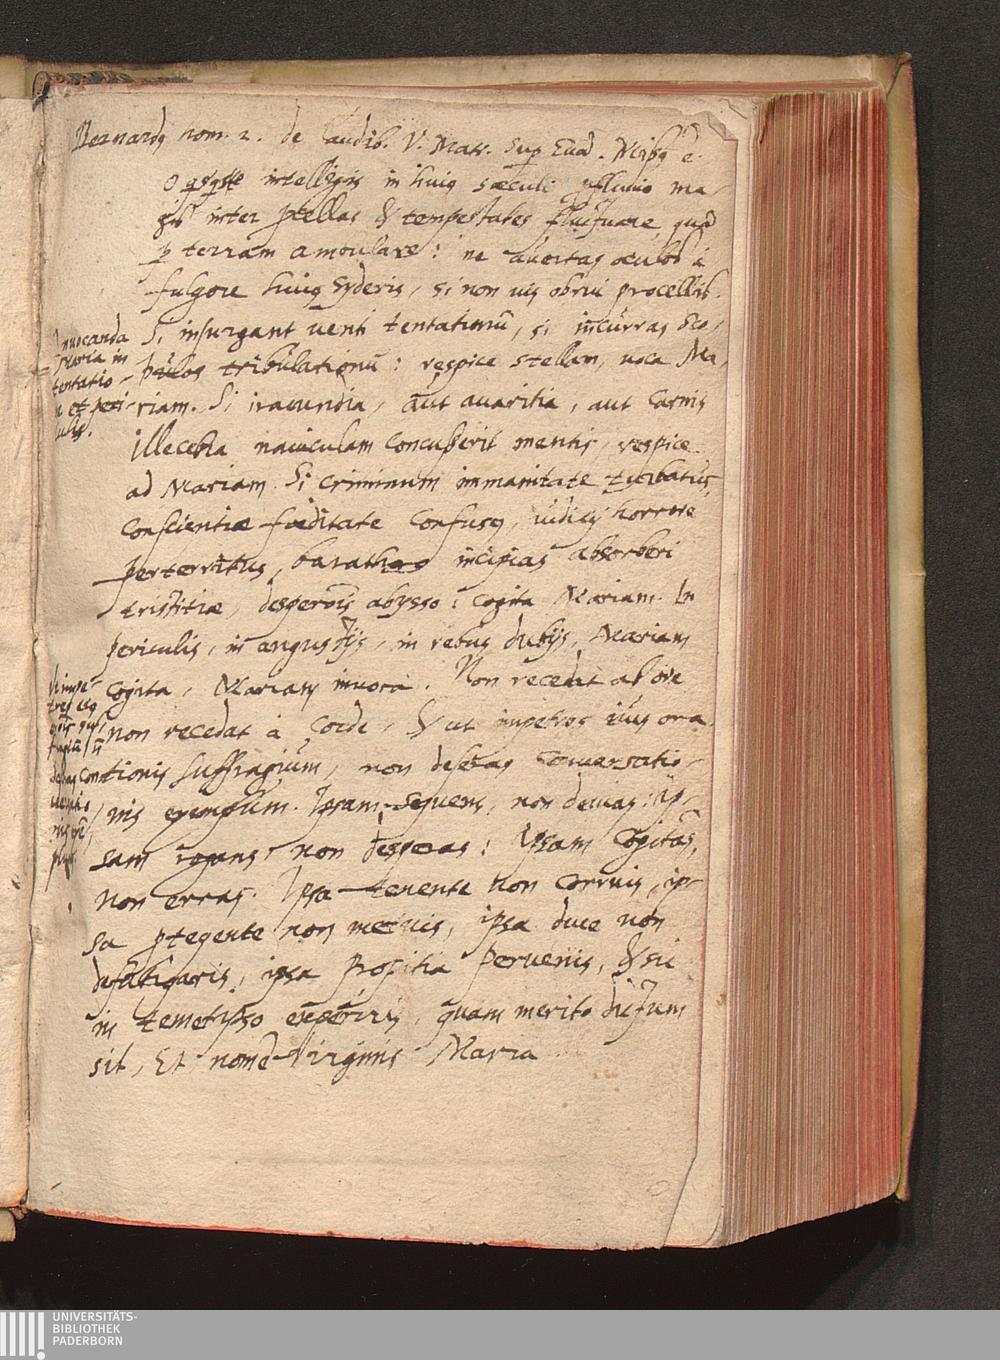 Bernardq hom. 2. de laudib. V. Matr. Sup Eua͂. Missq ē.
O qsqs te intelligis in huiq sæculi pfluuio ma-
gis inter pcellas & tempestates fluctuare, quā
p terram ambulare: ne auertas oculos à
fulgore huiq syderis, si non uis obrui procellis.
Si insurgant uenti tentationū, si incurras sco-
pulos tribulationū: respice stellam, uoca Ma-
riam. Si iracundia, aut auaritia, aut carnis
illecebra nauiculam concusserit mentis, respice
ad Mariam. Si criminum immanitate turbatus,
conscientiæ fœditate confusq, iudicij horrore
perterritus, barathro incipias absorberi
tristitiæ, desperōis abysso: cogita Mariam. In
periculis, in angustijs, in rebus dubijs, Mariam
cogita, Mariam inuoca. Non recedat ab ore
non recedat à corde, & ut impetres eius ora-
tionis suffragium, non deseras conuersatio-
nis exemplum. Ipsam sequens, non deuias: ip-
sam rogans non desperas: Ipsam cogitās,
non erras. Ipsa tenente non corruis, ip-
sa ptegente non metuis, ipsa duce non
defatigaris, ipsa propitia peruenis, & sic
in temetipso experiris, quam merito dictum
sit, Et nomē Virginis Maria
Inuocanda
Maria in
tentatio-
ne et peri-
culis.
Vt impe-
tres eiq
UNIVERSITÄTS-
BIBLIOTHEK
PADERBORN